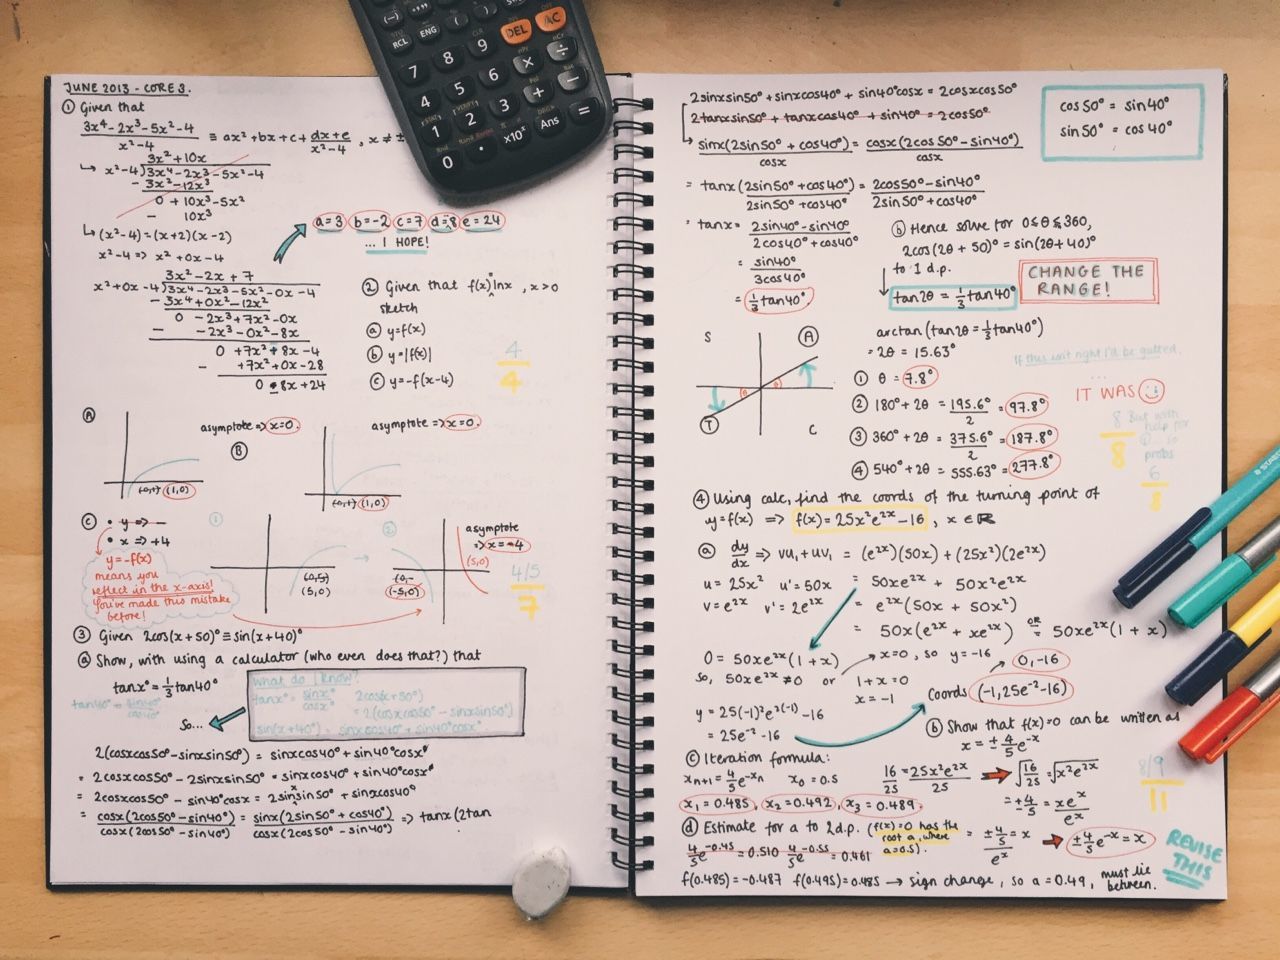 JUNE 2013 - CORE 3.
① Given that
3x⁴-2x³-5x²-4 / x²-4 ≡ ax²+bx+c+ dx+e / x²-4 , x ≠ ±
3x²+10x
x²-4)3x⁴-2x³-5x²-4
- 3x²-12x³
0 +10x³-5x²
- 10x³
(x²-4)=(x+2)(x-2)
x²-4 => x²+0x-4
a=3 b=-2 c=7 d=8 e=24
... I HOPE!
3x²-2x+7
x²+0x-4)3x⁴-2x³-5x²-0x-4
- 3x⁴+0x³-12x²
0 -2x³+7x²-0x
- -2x³-0x²-8x
0 +7x²+8x-4
- +7x²+0x-28
0 8x+24
② Given that f(x) lnx , x>0
sketch
ⓐ y=f(x)
ⓑ y=|f(x)|
ⓒ y=-f(x-4)
4/4
Ⓐ
asymptote => x=0.
(1,0)
Ⓑ
asymptote => x=0.
(1,0)
ⓒ • y => -
• x => +4
y=-f(x)
means you
reflect in the x-axis!
You've made this mistake
before!
①
(5,0)
②
(-5,0)
asymptote
=> x=-4
(5,0)
4/5
7
③ Given 2cos(x+50)° ≡ sin(x+40)°
ⓐ Show, with using a calculator (who even does that?) that
tanx° = ⅓tan40°
tan40° = sin40°/cos40°
So...
What do I know?
tanx° = sinx°/cosx°
2cos(x+50°)
= 2(cosxcos50° - sinxsin50°)
sin(x+40°) = sinxcos40° + sin40°cosx
2(cosxcos50°-sinxsin50°) = sinxcos40° + sin40°cosx°
= 2cosxcos50° - 2sinxsin50° = sinxcos40° + sin40°cosx°
= 2cosxcos50° - sin40°cosx = 2sinxsin50° + sinxcos40°
= cosx(2cos50°-sin40°) / cosx(2cos50°-sin40°) = sinx(2sin50° + cos40°) / cosx(2cos50° - sin40°) => tanx(2tan
2sinxsin50° + sinxcos40° + sin40°cosx = 2cosxcos50°
2tanxsin50° + tanxcos40° + sin40° = 2cos50°
sinx(2sin50° + cos40°) / cosx = cosx(2cos50°-sin40°) / cosx
cos50° = sin40°
sin50° = cos40°
= tanx(2sin50°+cos40°) / 2sin50°+cos40° = 2cos50°-sin40° / 2sin50°+cos40°
= tanx = 2sin40°-sin40° / 2cos40°+cos40°
= sin40° / 3cos40°
= ⅓tan40°
ⓑ Hence solve for 0≤θ≤360,
2cos(2θ+50)° = sin(2θ+40)°
to 1 d.p.
CHANGE THE
RANGE!
tan2θ = ⅓tan40°
S
A
T
C
arctan(tan2θ=⅓tan40°)
= 2θ = 15.63°
① θ = 7.8°
② 180°+2θ = 195.6°/2 = 97.8°
③ 360°+2θ = 375.6°/2 = 187.8°
④ 540°+2θ = 555.63° = 277.8°
If this isn't right I'll be gutted.
...
IT WAS
8/8
But with
help for
probs
6/8
④ Using calc, find the coords of the turning point of
y=f(x) => f(x) = 25x²e²ˣ-16 , x∈ℝ
ⓐ dy/dx => vu₁+uv₁ = (e²ˣ)(50x) + (25x²)(2e²ˣ)
u = 25x² u' = 50x = 50xe²ˣ + 50x²e²ˣ
v = e²ˣ v' = 2e²ˣ = e²ˣ(50x + 50x²)
= 50x(e²ˣ + xe²ˣ) OR = 50xe²ˣ(1+x)
0 = 50xe²ˣ(1+x) x=0, so y=-16 0,-16
so, 50xe²ˣ≠0 or 1+x=0
x=-1
Coords (-1,25e⁻²-16)
y = 25(-1)²e²⁽⁻¹⁾-16
= 25e⁻²-16
ⓑ Show that f(x)=0 can be written as
x = ±⅘e⁻ˣ
16/25 = 25x²e²ˣ/25 √16/25 = √x²e²ˣ
= ±4/5 = xeˣ/eˣ
= ±4/5 / eˣ = x ±⅘e⁻ˣ = x
ⓒ Iteration formula:
xₙ₊₁ = ⅘e⁻ˣₙ x₀ = 0.5
x₁=0.485, x₂=0.492, x₃=0.489.
ⓓ Estimate for a to 2d.p. (f(x)=0 has the
root a, where
a=0.5).
⅘e⁻⁰·⁴⁵ = 0.510 ⅘e⁻⁰·⁵⁵ = 0.461
f(0.485)=-0.487 f(0.495)=0.485 → sign change, so a = 0.49, must lie
between.
8/9
11
REVISE
THIS
RCL
ENG
(
)
DEL
AC
7
8
9
×
÷
4
5
6
+
-
1
2
3
Ans
=
0
.
×10ˣ